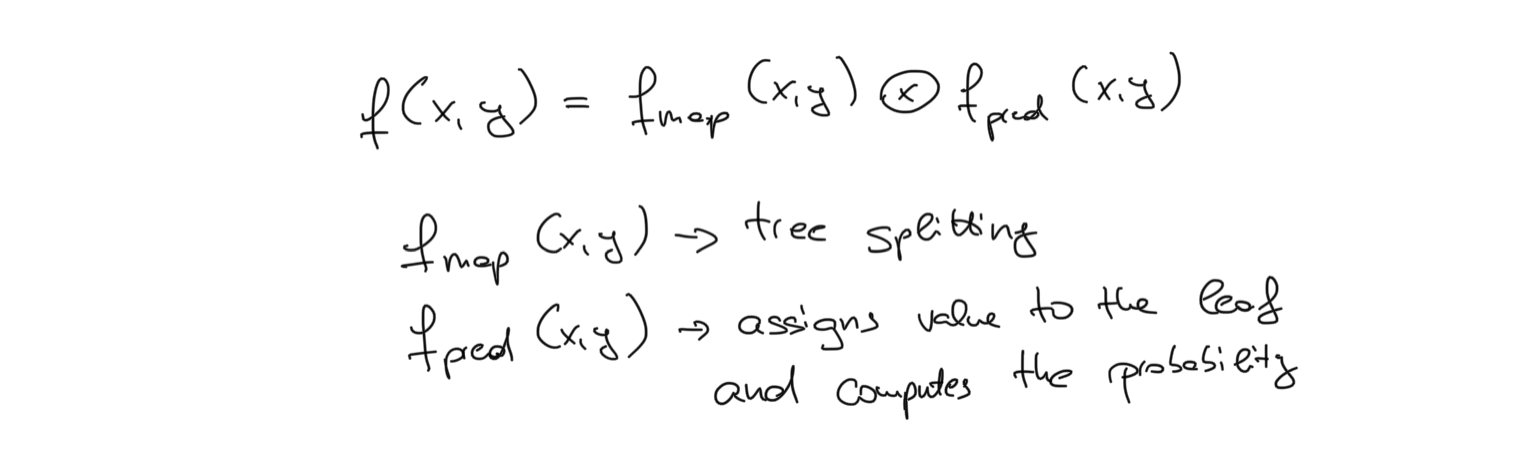 f(x, y) = f_map (x, y) ⊗ f_pred (x, y)
f_map (x, y) → tree splitting
f_pred (x, y) → assigns value to the leaf
and computes the probability